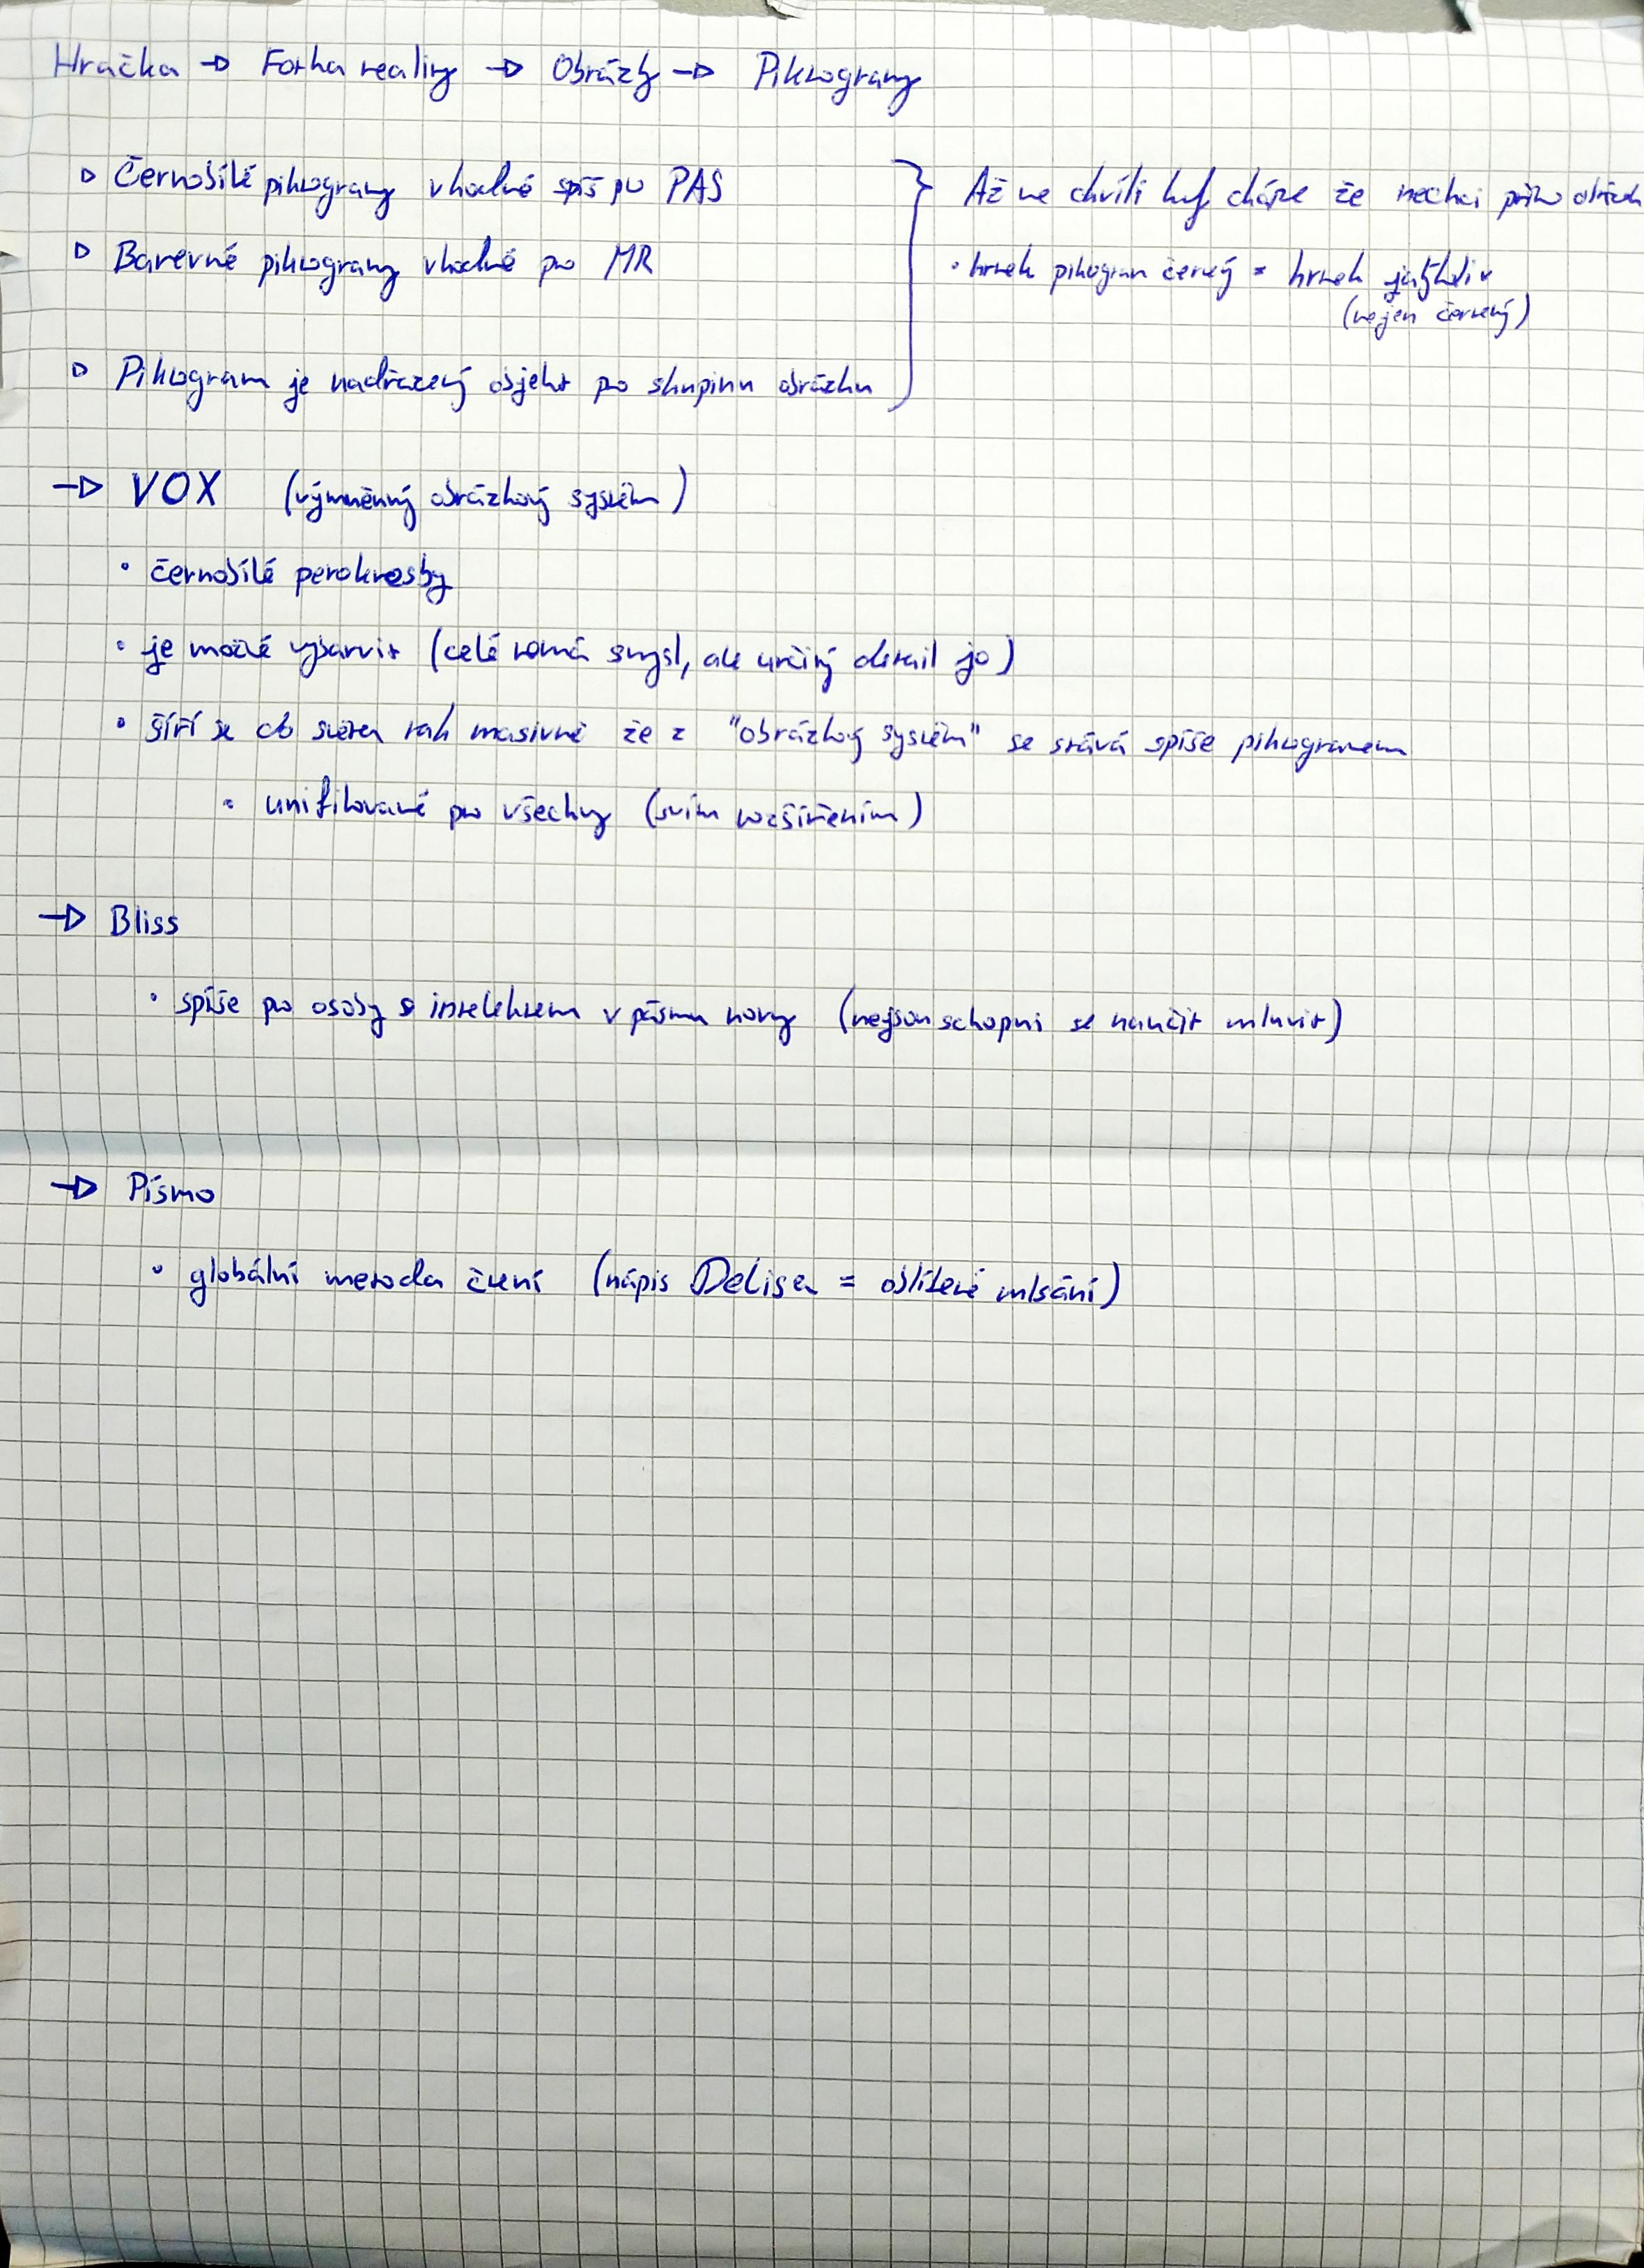 Hračka → Fotka reality → Obrázky → Piktogramy
▷ Černobílé piktogramy vhodné spíš pro PAS
▷ Barevné piktogramy vhodné pro MR
▷ Piktogram je nadřazený objekt pro skupinu obrázku
Až ve chvíli kdy chápe že nechci přímo
• hrnek piktogram červený = hrnek jakýkoliv
(nejen červený)
→ VOX (výměnný obrázkový systém)
• černobílé perokresby
• je možné vybarvit (celé nemá smysl, ale určitý detail jo)
• šíří se světem tak masivně že z "obrázkový systém" se stává spíše piktogramem
• unifikované pro všechny (svím rozšířením)
→ Bliss
• spíše pro osoby s intelektem v pásmu normy (nejsou schopni se naučit mluvit)
→ Písmo
• globální metoda čtení (nápis Delisa = oblíbené mlsání)